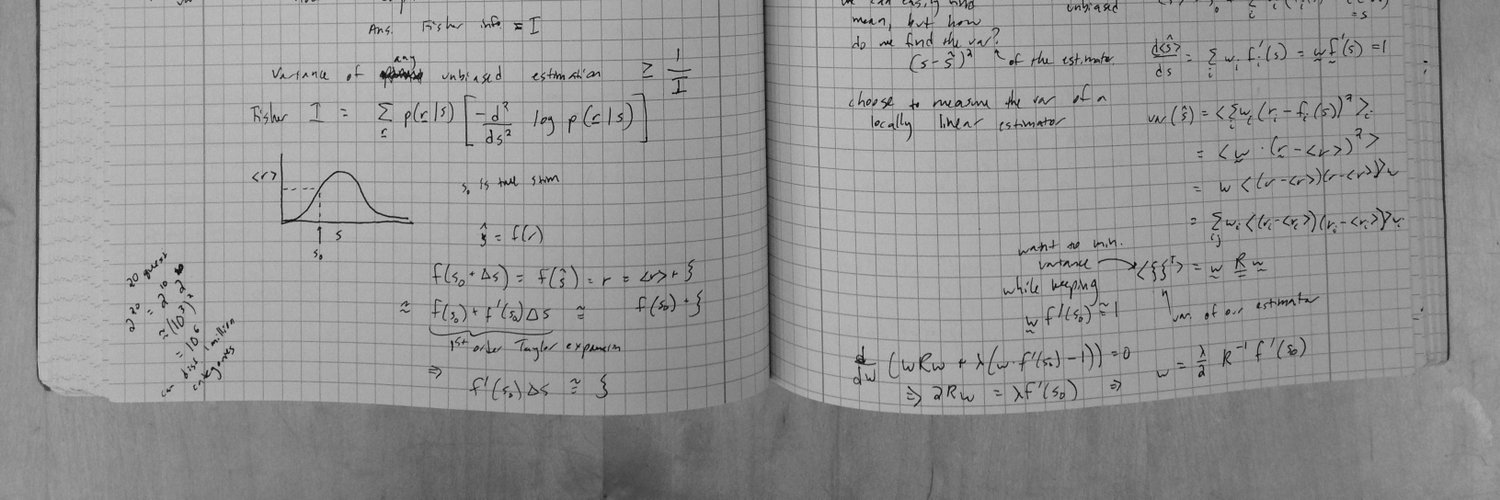 Ans. Fisher info = I
variance of any unbiased estimation ≥ 1/I
Fisher I = Σ_r p(r|s) [-d²/ds² log p(r|s)]
<r>
s
s₀
s₀ is true stim
ŝ = f(r)
f(s₀+Δs) = f(ŝ) = r = <r> + ξ
≅ f(s₀) + f'(s₀)Δs ≅ f(s₀) + ξ
1st order Taylor expansion
⇒ f'(s₀)Δs ≅ ξ
20 quest
2²⁰ = 2¹⁰ 2¹⁰
≈ (10³)²
= 10⁶
can disc 1 million
categories
we can easily find
mean, but how
do we find the var?
(s-ŝ)² of the estimator
choose to measure the var of a
locally linear estimator
unbiased
= s
d<ŝ>/ds = Σ_i w_i f_i'(s) = w f'(s) = 1
var(ŝ) = <(Σ_i w_i(r_i - f_i(s))²>
= <(w · (r - <r>)²>
= w <(r-<r>)(r-<r>)>w
= Σ_ij w_i <(r_i-<r_i>)(r_j-<r_j>)>w_j
want to min.
variance
while keeping
w f'(s₀) ≅ 1
<ξξᵀ> = w R w
var. of our estimator
d/dw (wRw + λ(w·f'(s₀)-1)) = 0
⇒ 2Rw = λf'(s₀) ⇒ w = λ/2 R⁻¹ f'(s₀)